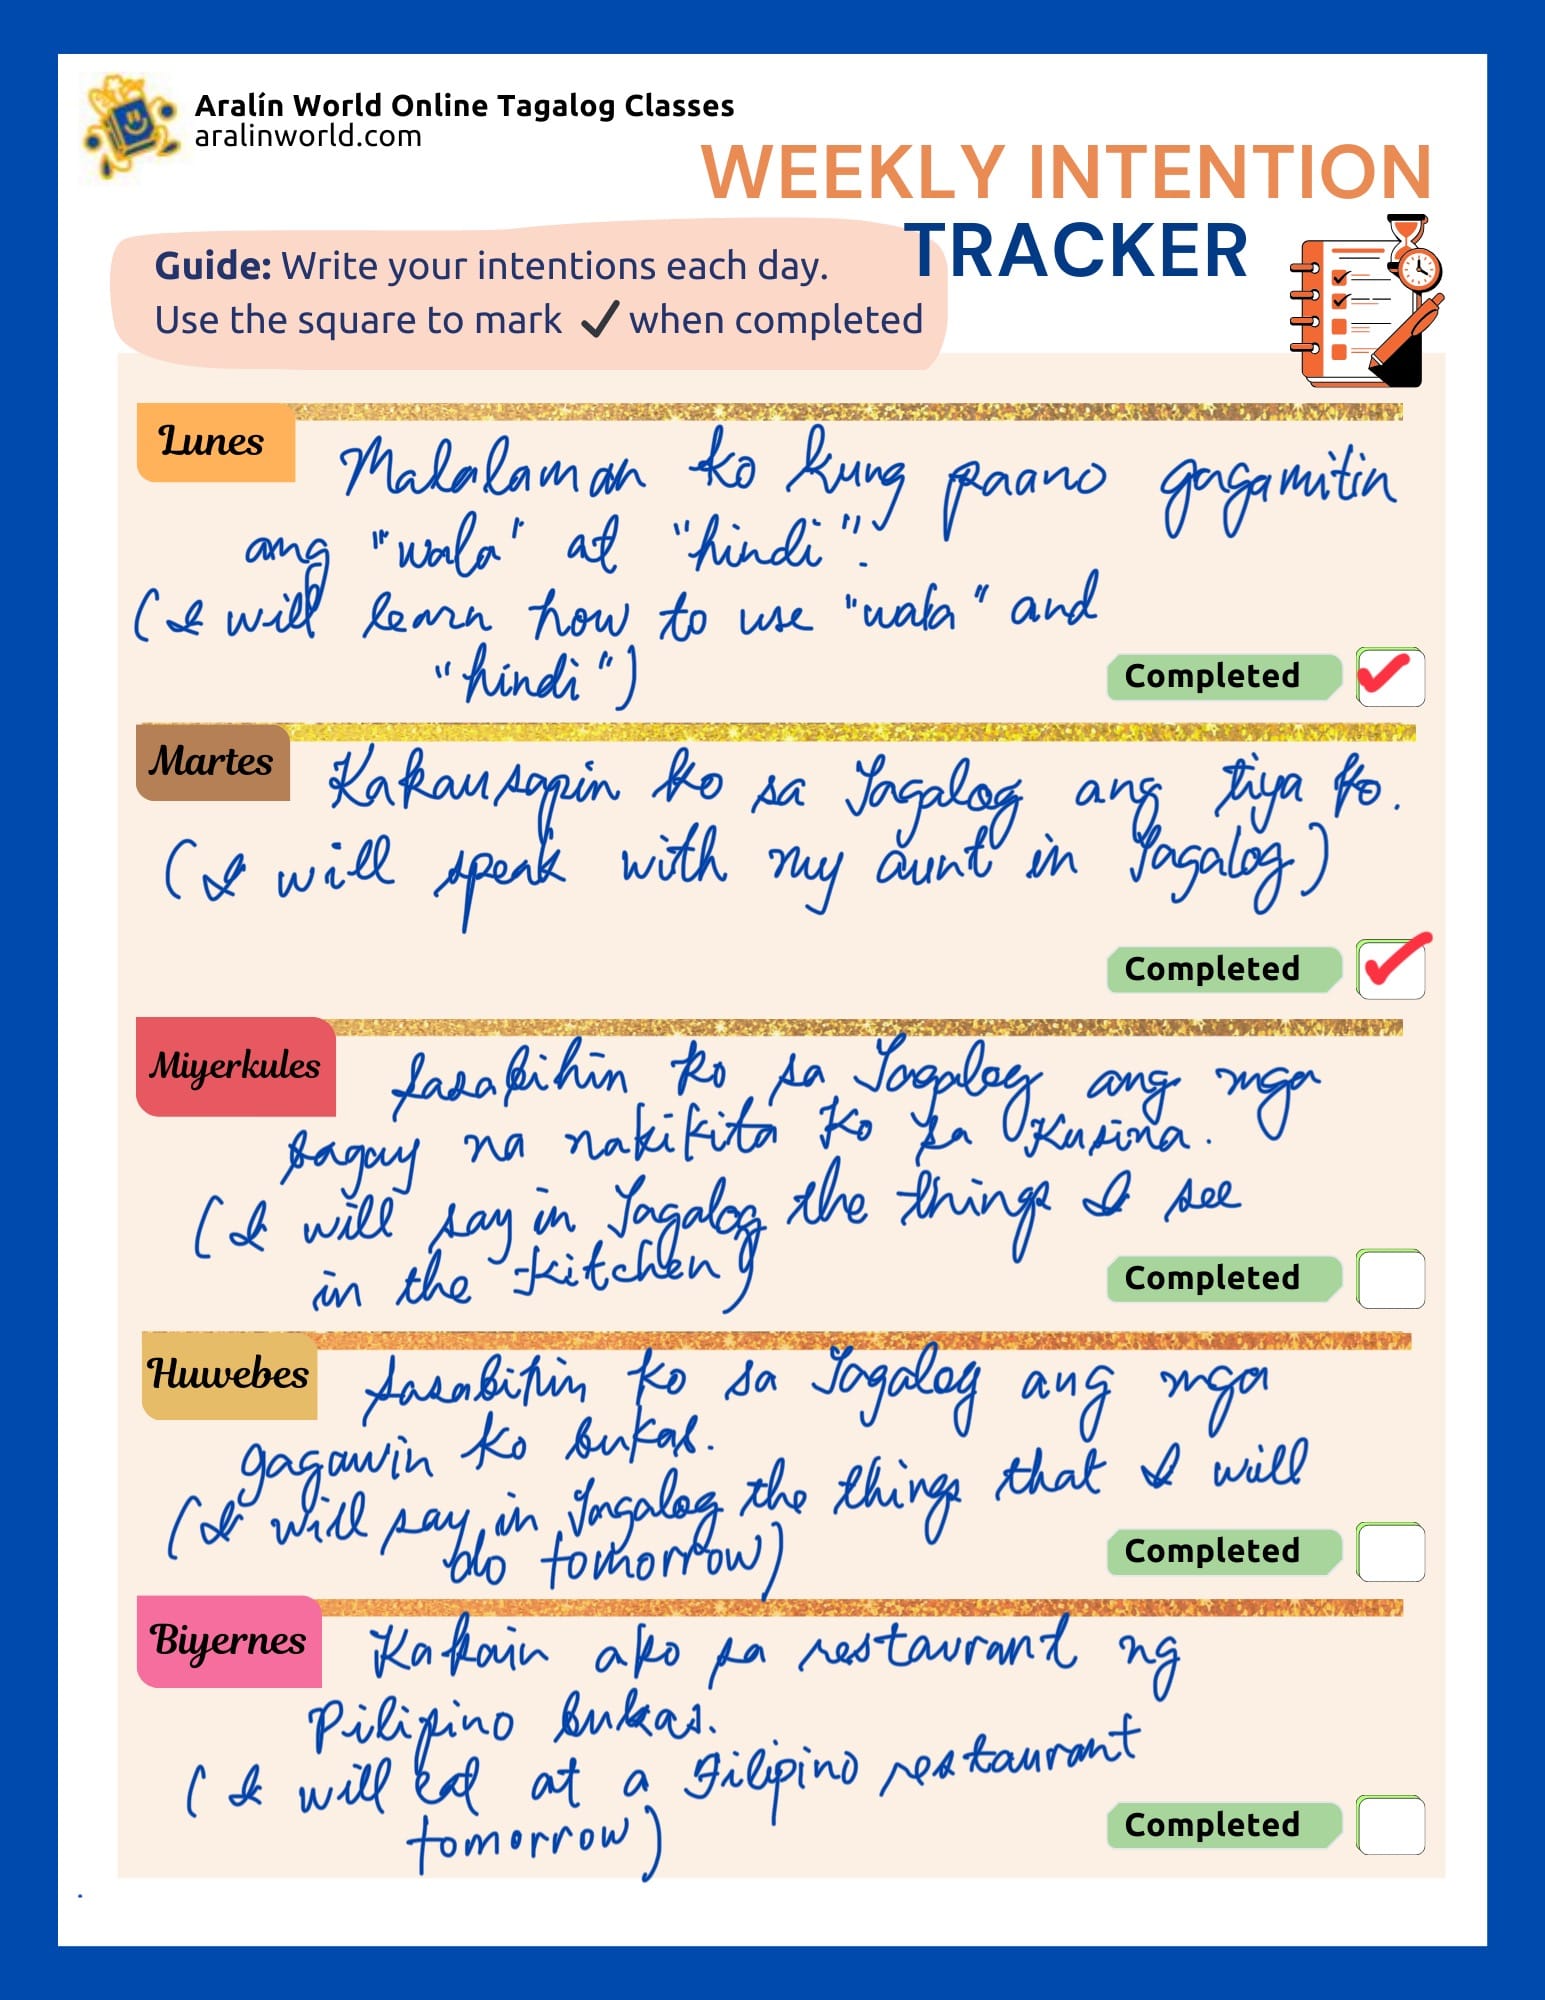 Aralín World Online Tagalog Classes
aralinworld.com
WEEKLY INTENTION
TRACKER
Guide: Write your intentions each day.
Use the square to mark ✓ when completed
Lunes
Malalaman ko kung paano gagamitin
ang "wala" at "hindi".
(I will learn how to use "wala" and
"hindi")
Completed ✓
Martes
Kakausapin ko sa Tagalog ang tiya ko.
(I will speak with my aunt in Tagalog)
Completed ✓
Miyerkules
Sasabihin ko sa Tagalog ang mga
bagay na nakikita ko sa Kusina.
(I will say in Tagalog the things I see
in the kitchen)
Completed
Huwebes
Sasabihin ko sa Tagalog ang mga
gagawin ko bukas.
(I will say in Tagalog the things that I will
do tomorrow)
Completed
Biyernes
Kakain ako sa restaurant ng
Pilipino bukas.
(I will eat at a Filipino restaurant
tomorrow)
Completed